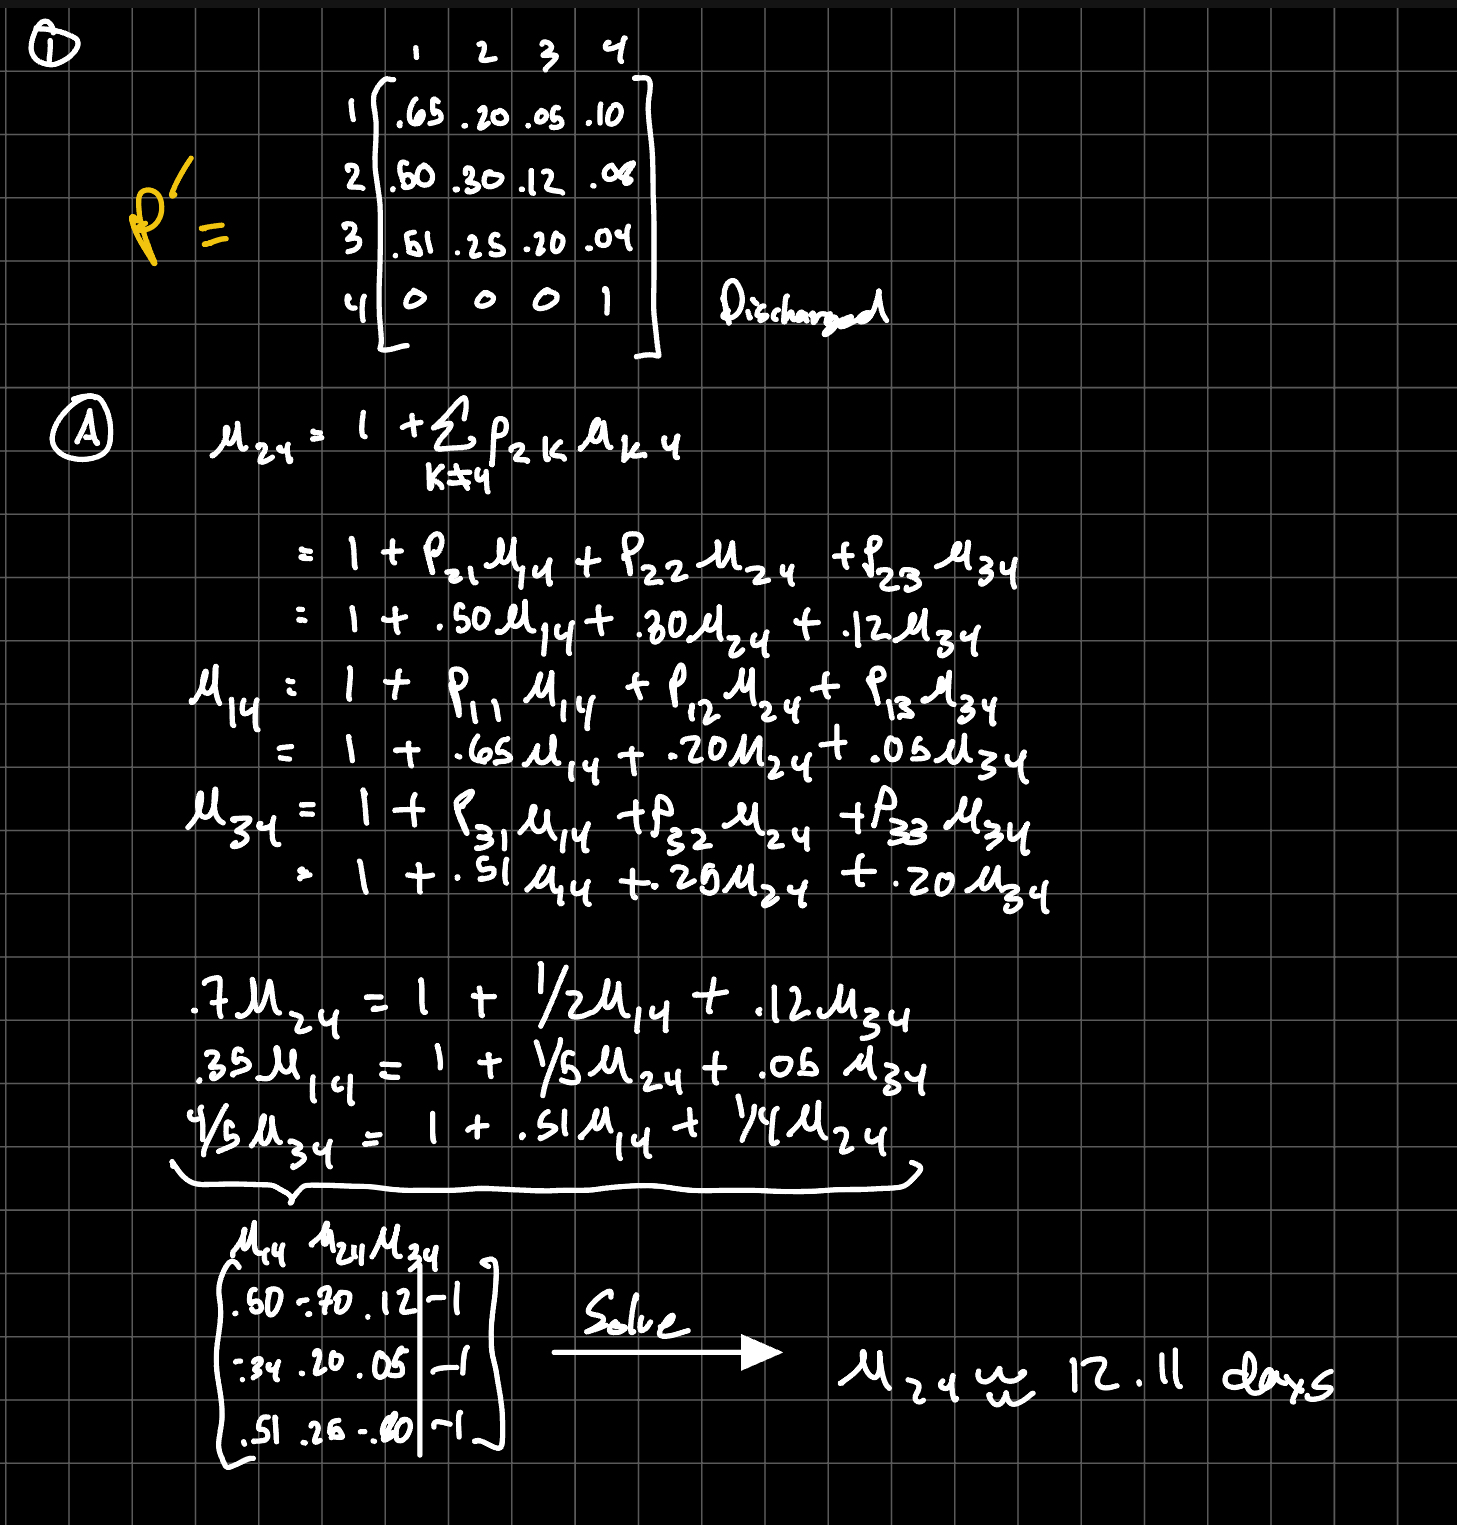 ①
1 2 3 4
1 .65 .20 .05 .10
P' = 2 .50 .30 .12 .08
3 .51 .25 .20 .04
4 0 0 0 1 Discharged
Ⓐ μ₂₄ = 1 + Σ P₂ₖ μₖ₄
k≠4
= 1 + P₂₁ μ₁₄ + P₂₂ μ₂₄ + P₂₃ μ₃₄
= 1 + .50 μ₁₄ + .30 μ₂₄ + .12 μ₃₄
μ₁₄ = 1 + P₁₁ μ₁₄ + P₁₂ μ₂₄ + P₁₃ μ₃₄
= 1 + .65 μ₁₄ + .20 μ₂₄ + .05 μ₃₄
μ₃₄ = 1 + P₃₁ μ₁₄ + P₃₂ μ₂₄ + P₃₃ μ₃₄
= 1 + .51 μ₁₄ + .25 μ₂₄ + .20 μ₃₄
.7 μ₂₄ = 1 + 1/2 μ₁₄ + .12 μ₃₄
.35 μ₁₄ = 1 + 1/5 μ₂₄ + .05 μ₃₄
4/5 μ₃₄ = 1 + .51 μ₁₄ + 1/4 μ₂₄
μ₁₄ μ₂₄ μ₃₄
.50 -.70 .12 | -1
-.34 .20 .05 | -1
.51 .25 -.80 | -1
Solve
μ₂₄ ≈ 12.11 days